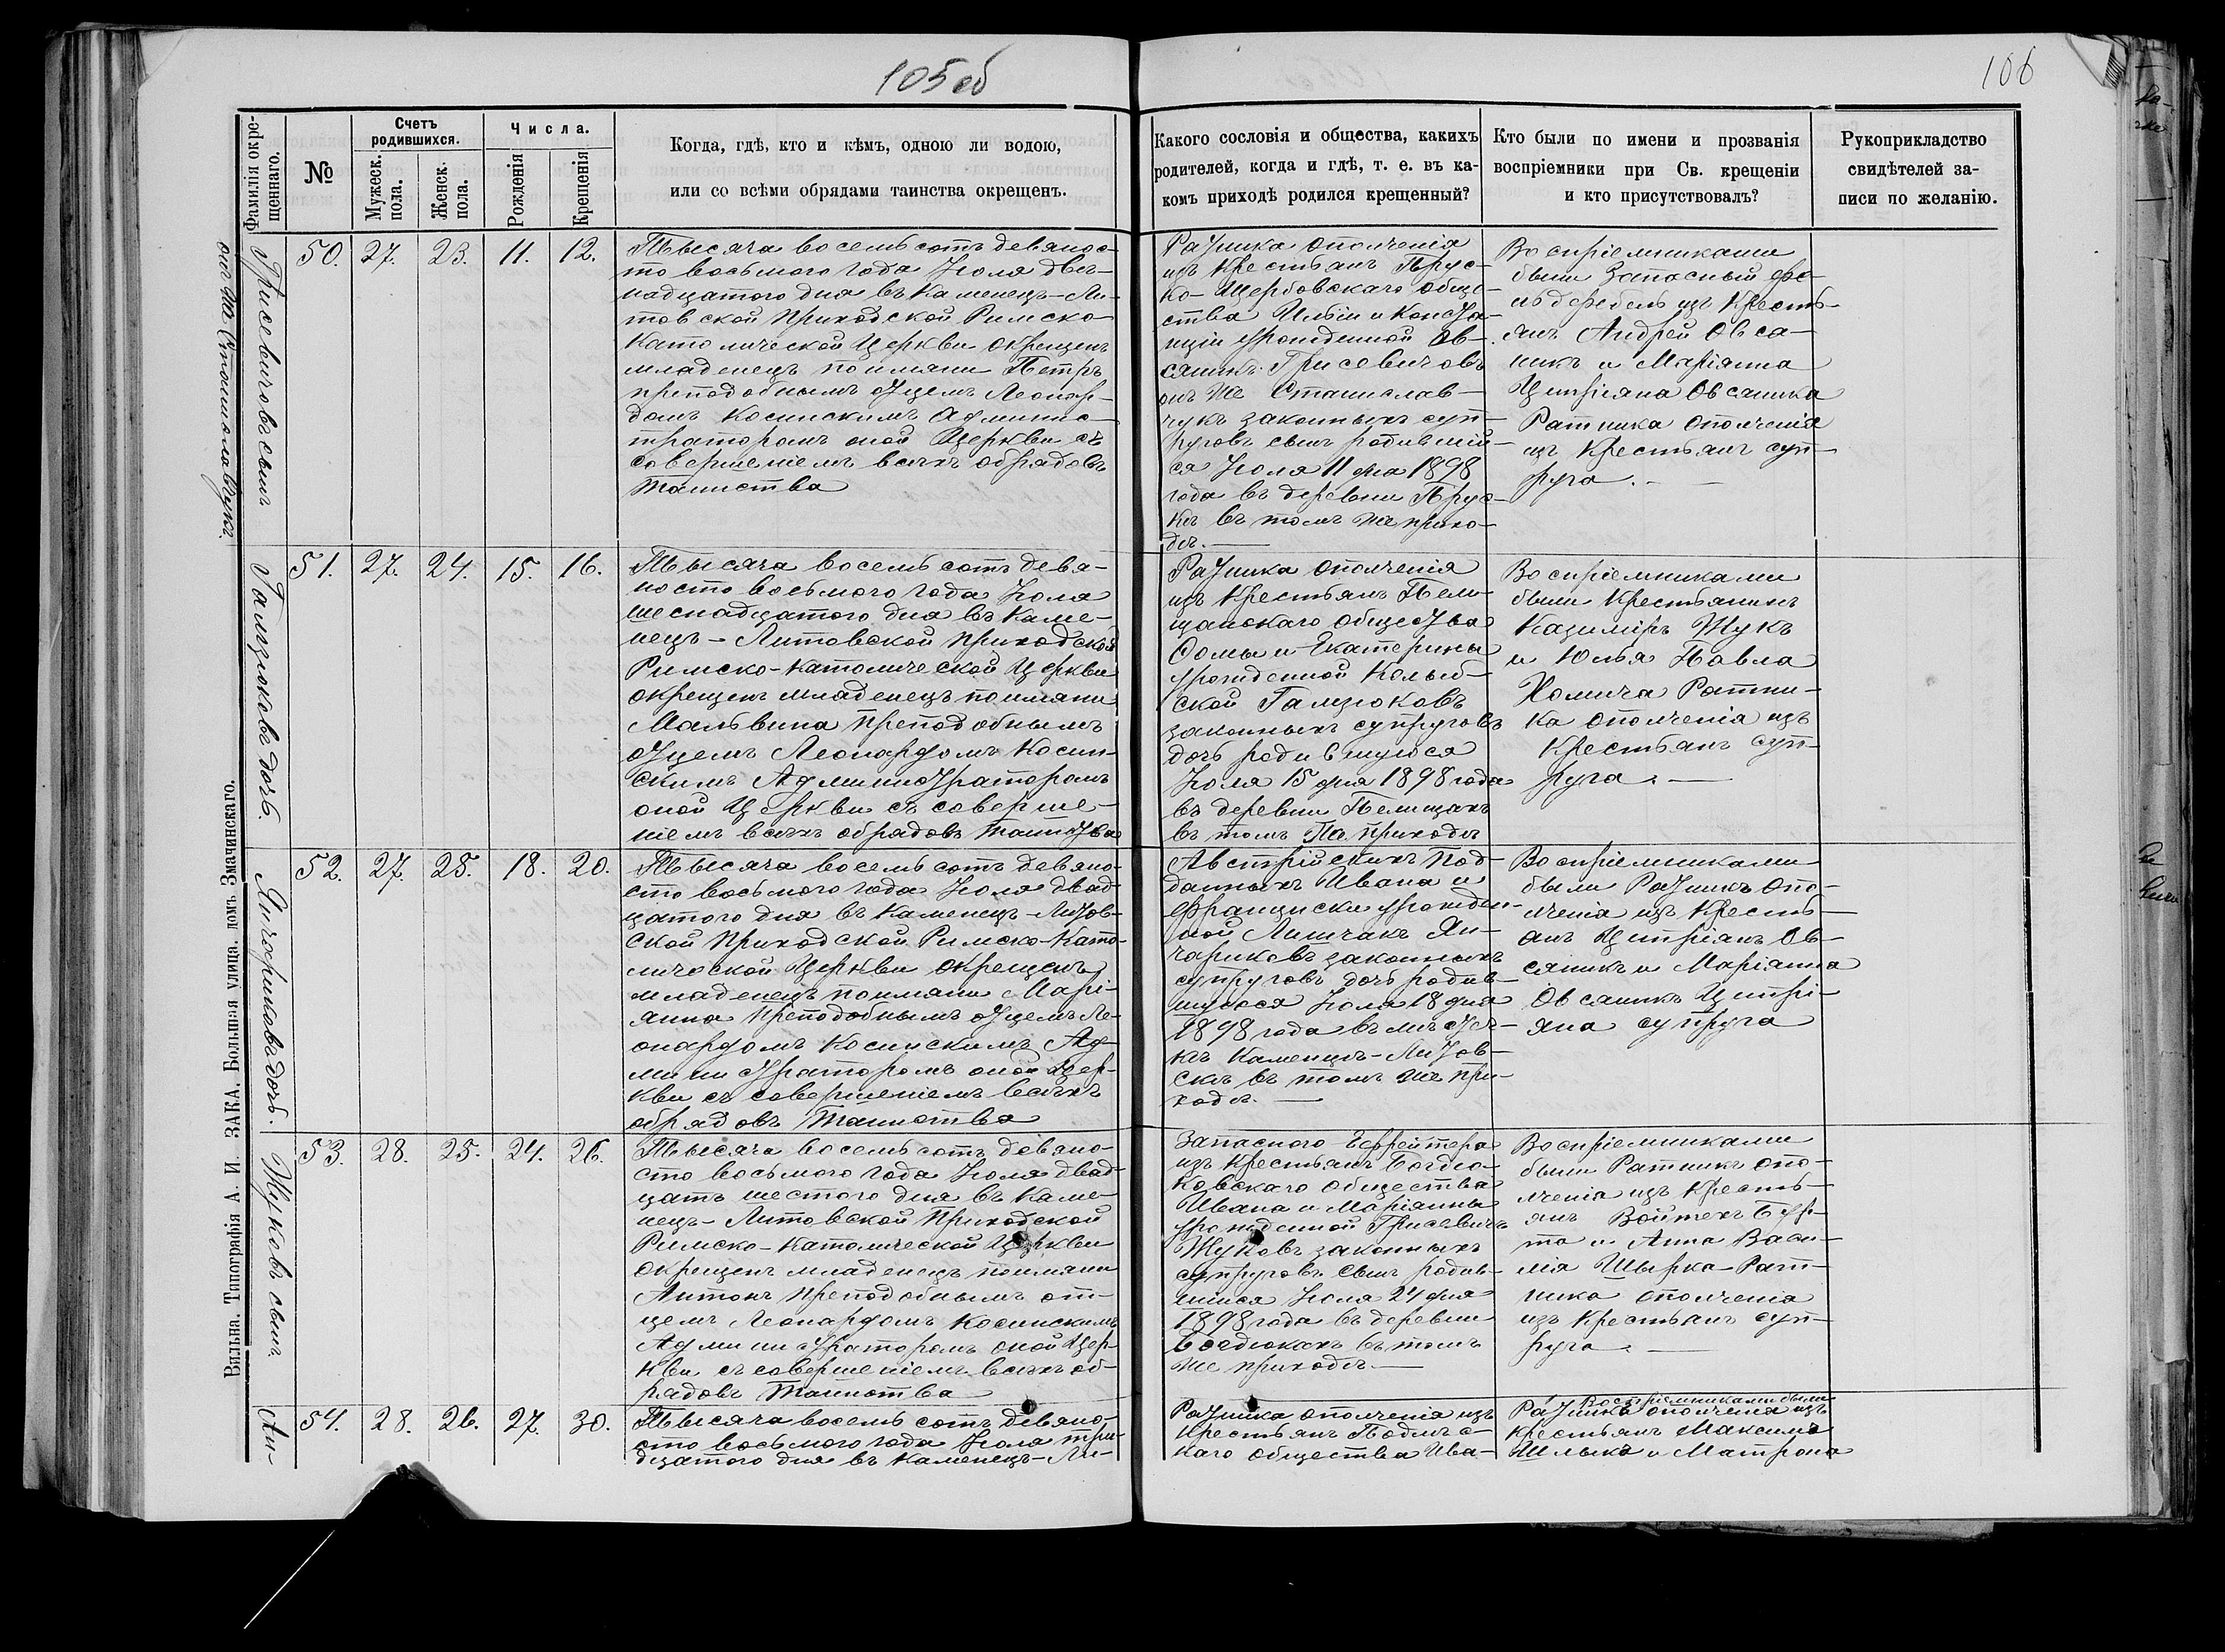 105 об
106
Фамилія окре-
щеннаго.
№
Счетъ
родившихся.
Мужеск.
пола.
Женск.
пола.
Числа.
Рожденія
Крещенія
Когда, гдѣ, кто и кѣмъ, одною ли водою,
или со всѣми обрядами таинства окрещенъ.
Какого сословія и общества, какихъ
родителей, когда и гдѣ, т. е. въ ка-
комъ приходѣ родился крещенный?
Кто были по имени и прозванія
воспріемники при Св. крещеніи
и кто присутствовалъ?
Рукоприкладство
свидѣтелей за-
писи по желанію.
Грисевичовъ сынъ
онъ же Станиславчукъ.
50. 27. 23. 11. 12.
Тысяча восемьсотъ девянос-
то восьмого года Іюля двѣ-
надцатого дня въ Каменецъ-Ли-
товской Приходской Римско-
Католической Церкви окрещенъ
младенецъ по имяни Петръ
преподобнымъ отцемъ Леонар-
домъ Косинскимъ Админис-
траторомъ оной Церкви съ
совершеніемъ всѣхъ обрядовъ
Таинства
Ратника ополченія
изъ Крестьянъ Прус-
ко-Щербовскаго обще-
ства Ильіи и Конста-
нціи урожденной Ов-
сяникъ Грисевичовъ
онъ же Станислав-
чукъ законныхъ суп-
руговъ сынъ родившій-
ся Іюля 11 дня 1898
года въ деревни Прус-
кѣ въ томъ же прихо-
дѣ.—
Воспріемниками
были Запасный фе-
льдфебель изъ Кресть-
янъ Андрей Овся-
никъ и Маріянна
Ципріяна Овсяника
Ратника ополченія
изъ Крестьянъ суп-
руга.—
Гамзюковъ дочь.
51. 27. 24. 15. 16.
Тысяча восемьсотъ девя-
носто восьмого года Іюля
шеснадцатого дня въ Каме-
нецъ-Литовской Приходской
Римско-Католической Церкви
окрещенъ младенецъ по имяни
Мальвина Преподобнымъ
отцемъ Леонардомъ Косин-
скимъ Администраторомъ
оной Церкви съ соверше-
ніемъ всѣхъ обрядовъ Таинства
Ратника ополченія
изъ Крестьянъ Пели-
щанскаго общества
Ѳомы и Екатерины
урожденной
ской Гамзюковъ
законныхъ супруговъ
дочь родившуюся
Іюля 15 дня 1898 года
въ деревни Пелищахъ
въ томъ же приходѣ
Воспріемниками
были Крестьянинъ
Казиміръ Жукъ
и Юлья Павла
Хомича Ратни-
ка ополченія изъ
Крестьянъ суп-
руга.—
Янчариковъ дочь.
52. 27. 25. 18. 20.
Тысяча восемьсотъ девяно-
сто восьмого года Іюля двад-
цатого дня въ Каменецъ-Литов-
ской Приходской Римско-Като-
лической Церкви окрещенъ
младенецъ по имяни Марі-
янна Преподобнымъ отцемъ Ле-
онардомъ Косинскимъ Ад-
министраторомъ оной Цер-
кви съ совершеніемъ всѣхъ
обрядовъ Таинства
Австрійскихъ Под-
данныхъ Ивана и
Франциски урожден-
ной Липчакъ Ян-
чариковъ законныхъ
супруговъ дочь родив-
шуюся Іюля 18 дня
1898 года въ мѣстеч-
кѣ Каменцѣ-Литов-
скѣ въ томъ же при-
ходѣ.—
Воспріемниками
были Ратникъ опо-
лченія изъ Кресть-
янъ Ципріянъ Ов-
сяникъ и Маріянна
Овсяникъ Ципрі-
яна супруга
Жуковъ сынъ.
53. 28. 25. 24. 26.
Тысяча восемьсотъ девяно-
сто восьмого года Іюля двад-
цать шестого дня въ Каме-
нецъ-Литовской Приходской
Римско-Католической Церкви
окрещенъ младенецъ по имяни
Антонъ Преподобнымъ от-
цемъ Леонардомъ Косинскимъ
Администраторомъ оной Цер-
кви съ совершеніемъ всѣхъ об-
рядовъ Таинства
Запасного Ефрейтера
изъ Крестьянъ Богдю-
ковскаго общества
Ивана и Маріянны
урожденной Грисевичъ
Жуковъ законныхъ
супруговъ сынъ родив-
шійся Іюля 24 дня
1898 года въ деревни
Богдюкахъ въ томъ
же приходѣ.—
Воспріемниками
были Ратникъ опо-
лченія изъ Кресть-
янъ Войтехъ Бур-
та и Анна Васи-
лія Шырка Рат-
ника ополченія
изъ Крестьянъ суп-
руга.—
Ан-
54. 28. 26. 27. 30.
Тысяча восемьсотъ девяно-
сто восьмого года Іюля три-
дцатого дня въ Каменецъ-Ли-
Ратника ополченія изъ
Крестьянъ
каго общества Ива-
Воспріемниками были
Ратникъ ополченія изъ
крестьянъ Максимъ
и Матрона
Вильна. Типографія А. И. ЗАКА. Большая улица, домъ Змачинскаго.